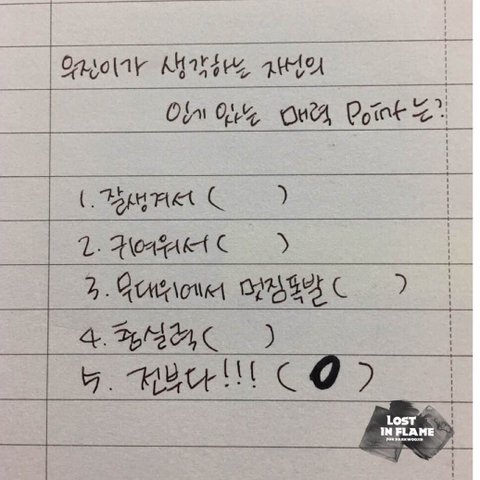 우진이가 생각하는 자신의
인기 있는 매력 Point는?
1. 잘생겨서 ( )
2. 귀여워서 ( )
3. 무대위에서 멋짐폭발 ( )
4. 춤실력 ( )
5. 전부다!!! ( O )
LOST
IN FLAME
FOR PARKWOOJIN